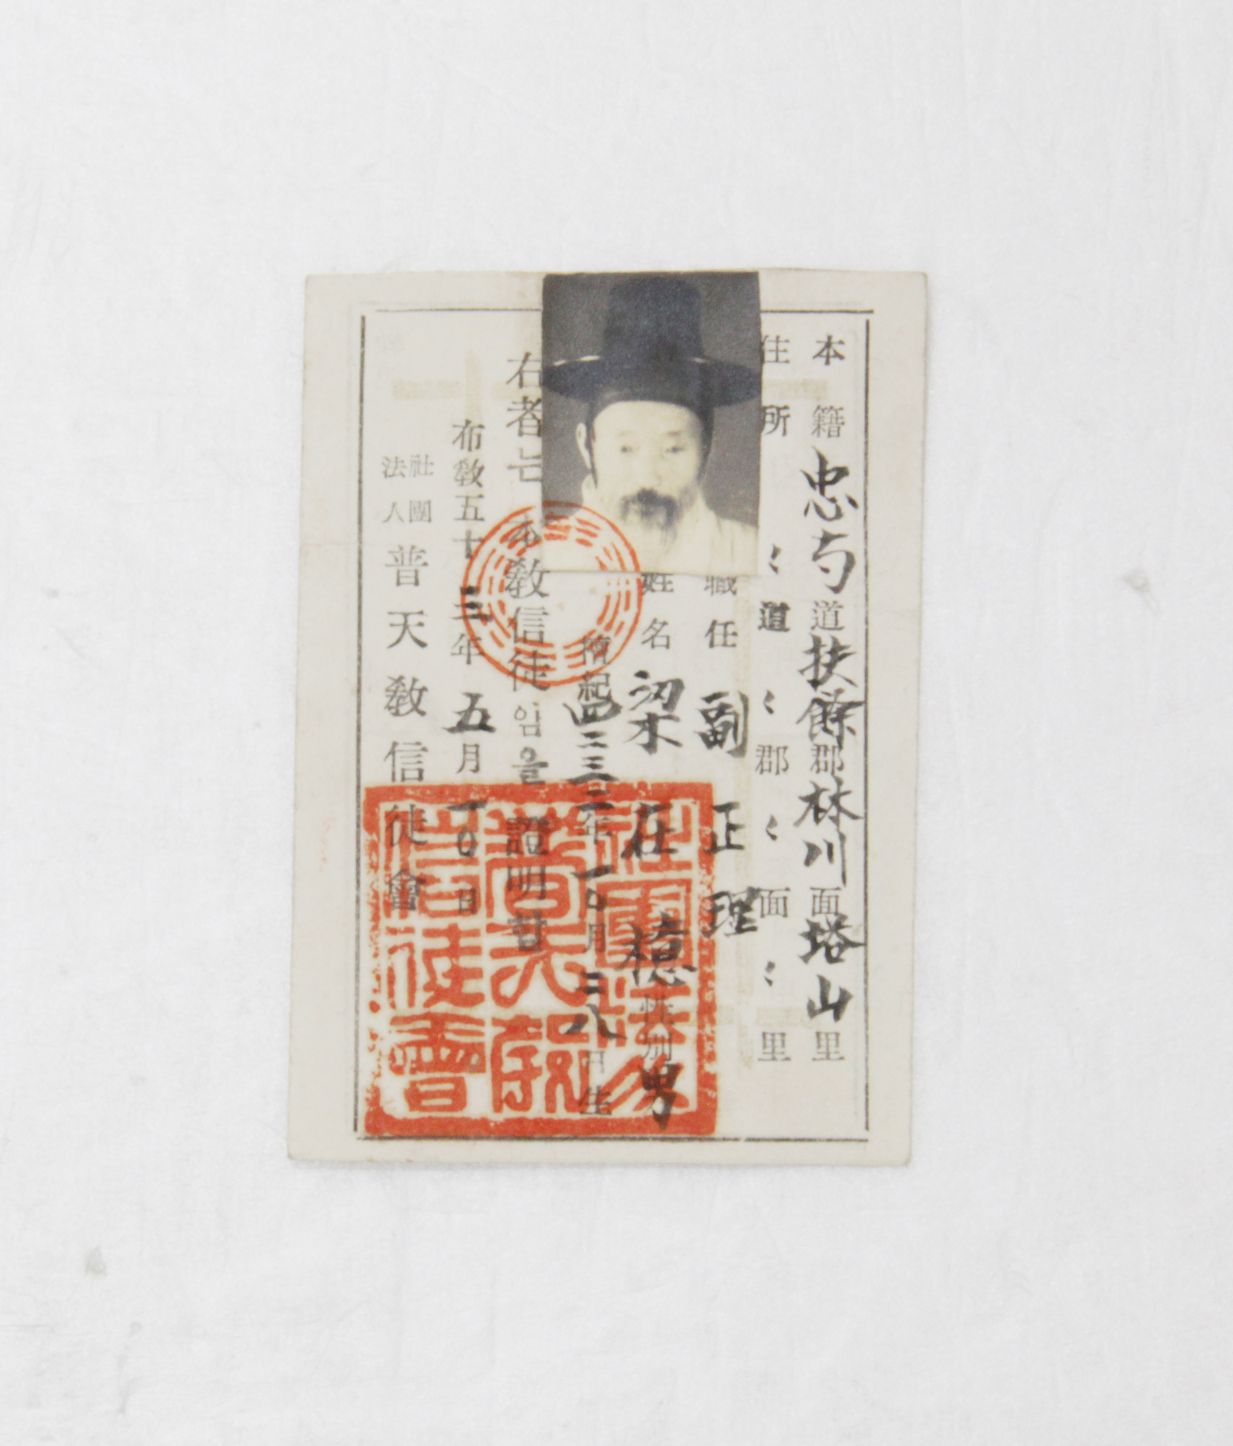 本籍 忠ㄅ道 扶餘郡 林川面 塔山里
住所 〻道 〻郡 〻面 〻里
職任 副正理
姓名 梁在穏 性別 男
檀紀四二三二年一〇月二八日生
右者는 本敎信徒임을 證明함
布敎五十三年五月一〇日
社團法人 普天敎信徒會
社團法人普天敎信徒會